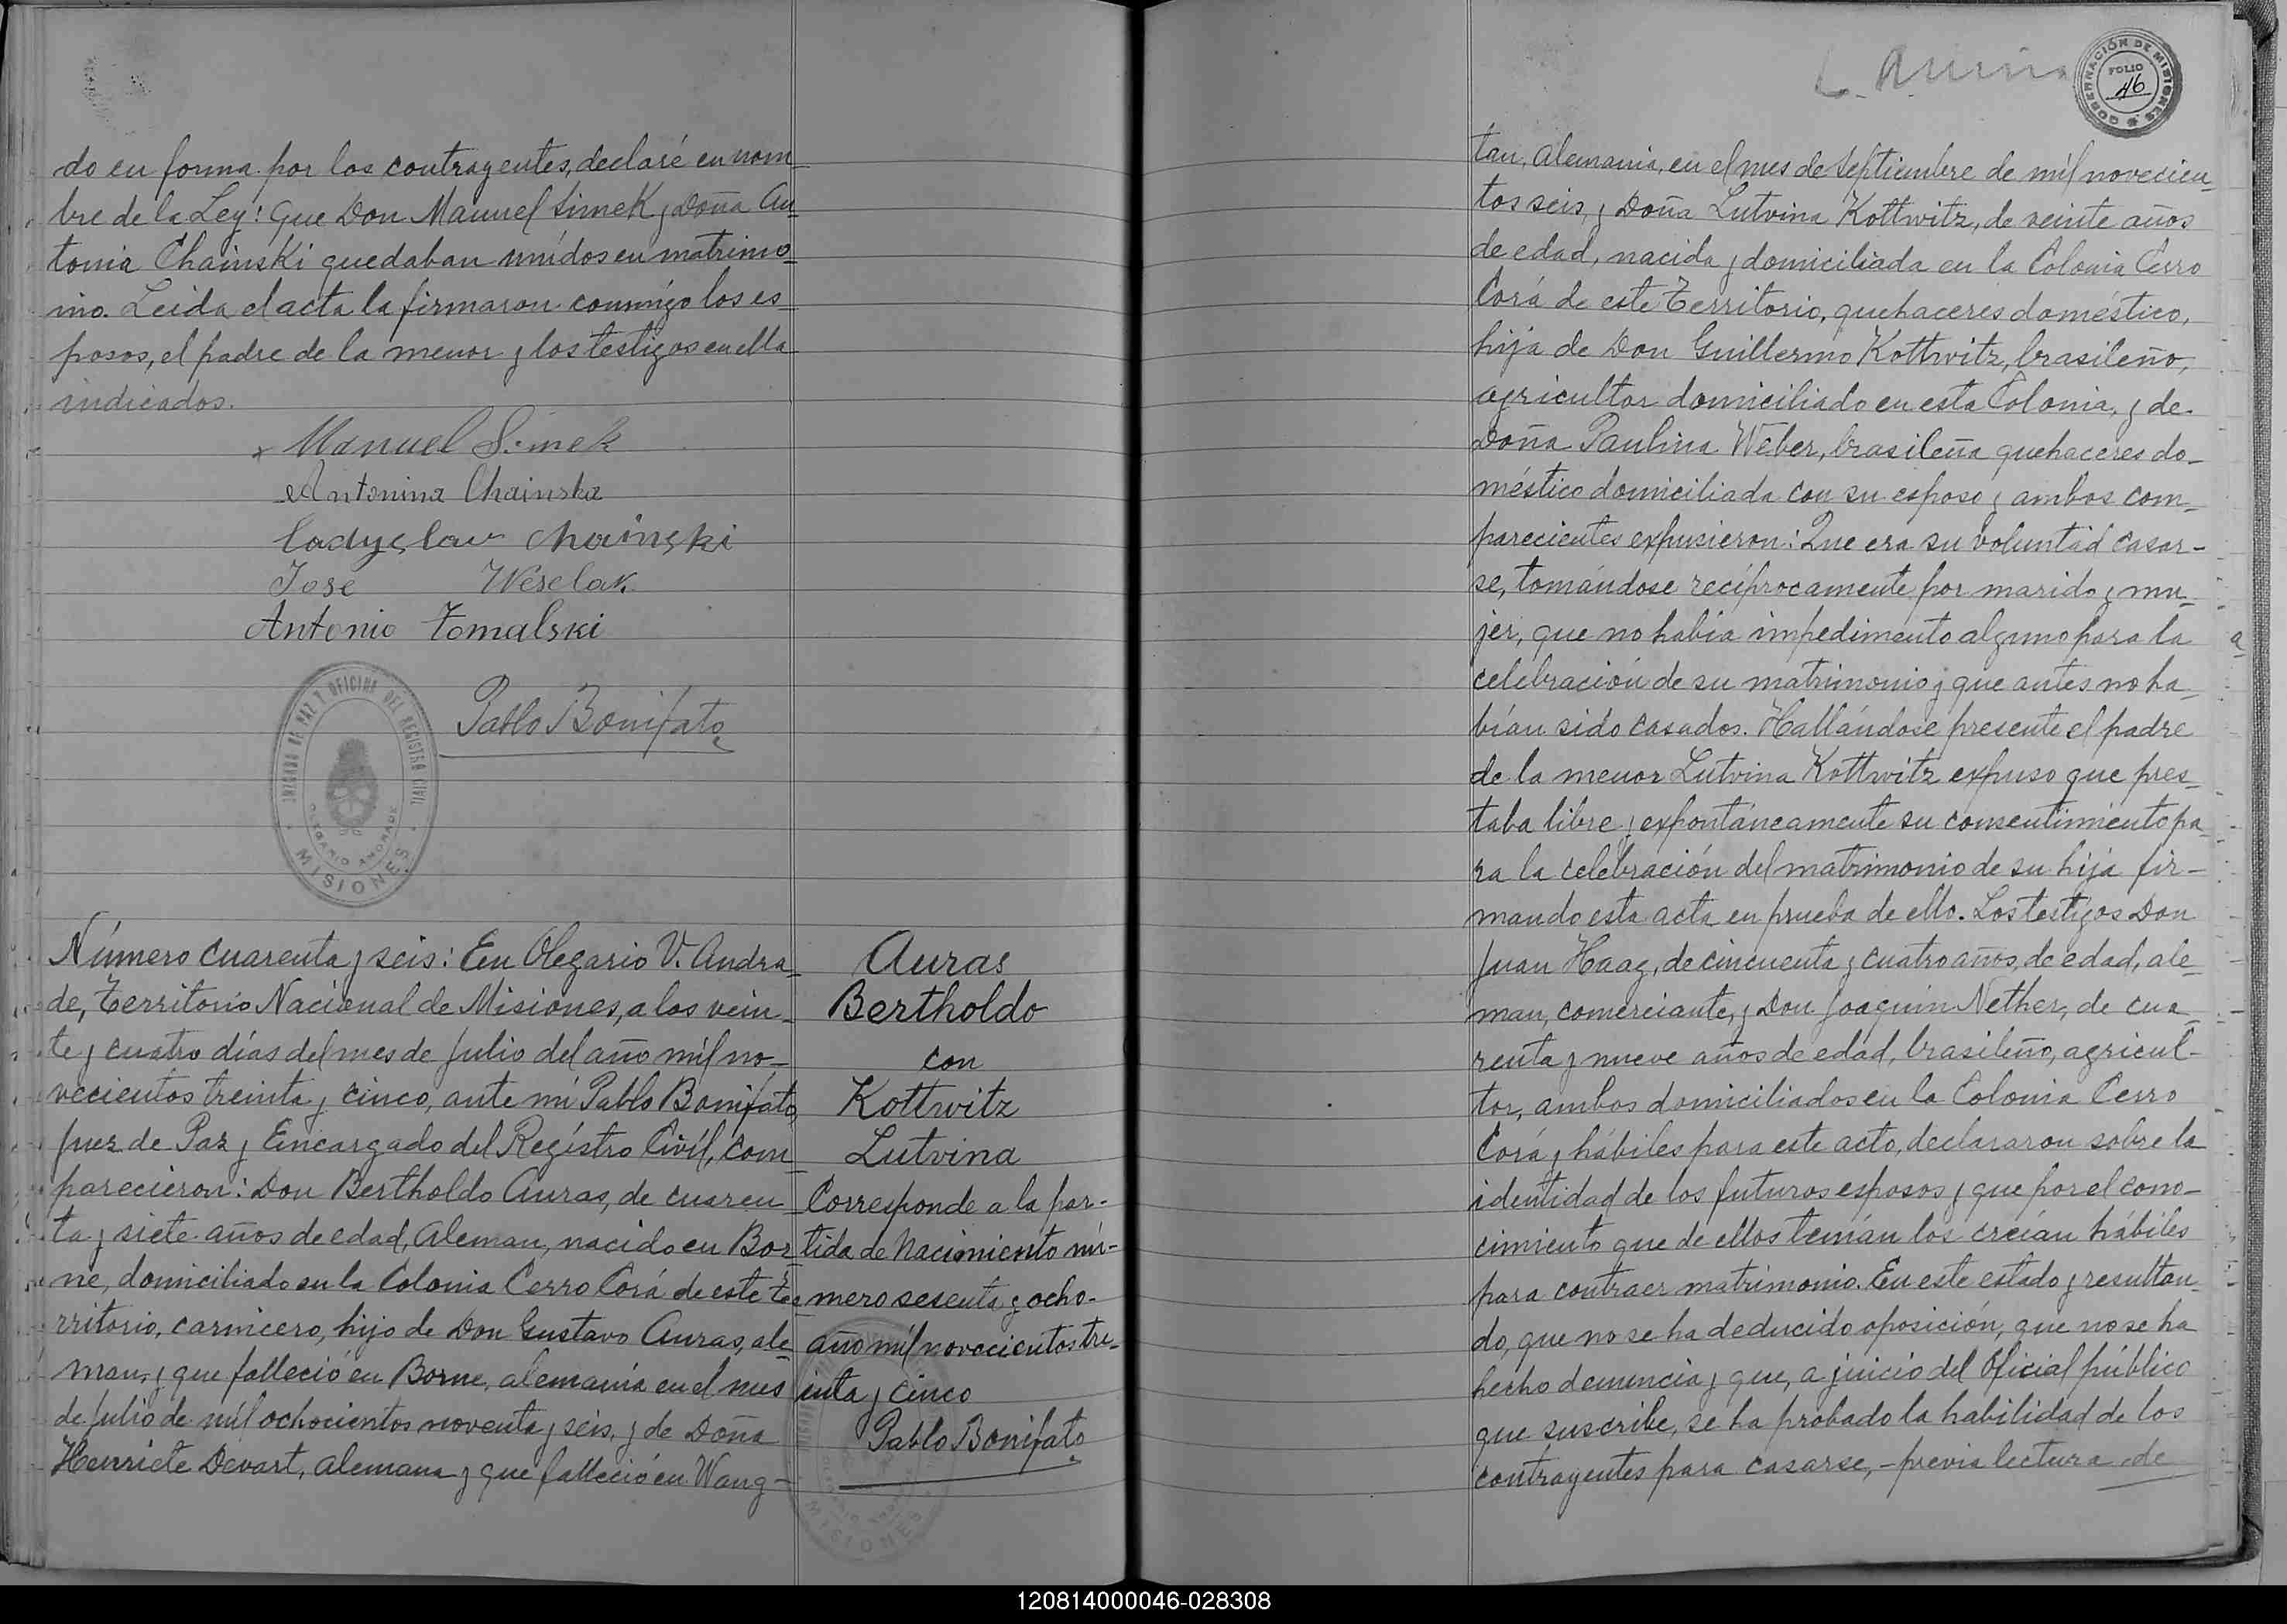 do en forma por los contrayentes, declaré en nom_
bre de la Ley: Que Don Manuel Simek y Doña An_
tonia Chainski quedaban unidos en matrimo_
nio. Leida el acta la firmaron conmigo los es_
posos, el padre de la menor y los testigos en ella
indicados.
x Manuel Simek
Antonina Chainska
Ladyslav Chainski
Jose Weselak
Antonio Tomalski
Pablo Bonifato
JUZGADO DE PAZ Y OFICINA DEL REGISTRO CIVIL
OLEGARIO ANDRADE
MISIONES
Número cuarenta y seis: En Olegario V. Andra_
de, Territorio Nacional de Misiones, a los vein_
te y cuatro días del mes de Julio del año mil no_
vecientos treinta y cinco, ante mi Pablo Bonifato,
Juez de Paz y Encargado del Registro Civil, com_
parecieron: Don Bertholdo Auras, de cuaren_
ta y siete años de edad, Aleman, nacido en Bor_
ne, domiciliado en la Colonia Cerro Corá de este Te_
rritorio, carnicero, hijo de Don Gustavo Auras, ale_
man, y que falleció en Borne, alemania en el mes
de Julio de mil ochocientos noventa y seis, y de Doña
Henriete Devart, alemana y que falleció en Wang_
Auras
Bertholdo
con
Kottwitz
Lutvina
Corresponde a la par-
tida de Nacimiento nú-
mero sesenta y ocho-
año mil novecientos tre-
inta y cinco
Pablo Bonifato
MISIONES
GOBERNACIÓN DE MISIONES
FOLIO
46
tan, Alemania, en el mes de Septiembre de mil novecien_
tos seis, y Doña Lutvina Kottwitz, de veinte años
de edad, nacida y domiciliada en la Colonia Cerro
Corá de este Territorio, quehaceres doméstico,
hija de Don Guillermo Kottwitz, brasileño,
agricultor domiciliado en esta Colonia, y de
Doña Paulina Weber, brasileña quehaceres do_
méstico domiciliada con su esposo y ambos com_
parecientes expusieron: Que era su voluntad casar-
se, tomándose recíprocamente por marido y mu_
jer, que no había impedimento alguno para la
celebración de su matrimonio y que antes no ha_
bían sido casados. Hallándose presente el padre
de la menor Lutvina Kottwitz expuso que pres_
taba libre y expontáneamente su consentimiento pa_
ra la celebración del matrimonio de su hija fir-
mando esta acta en prueba de ello. Los testigos Don
Juan Haag, de cincuenta y cuatro años, de edad, ale_
man, comerciante, y Don Joaquín Nether, de cua_
renta y nueve años de edad, brasileño, agricul-
tor, ambos domiciliados en la Colonia Cerro
Corá y hábiles para este acto, declararon sobre la
identidad de los futuros esposos y que por el cono-
cimiento que de ellos tenían los creían hábiles
para contraer matrimonio. En este estado y resultan_
do, que no se ha deducido oposición, que no se ha
hecho denuncia y que, a juicio del Oficial público
que suscribe, se ha probado la habilidad de los
contrayentes para casarse, - previa lectura de
120814000046-028308